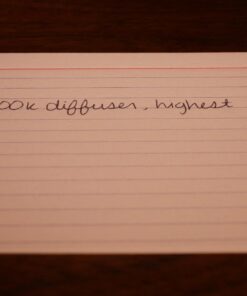 00k diffuser, highest